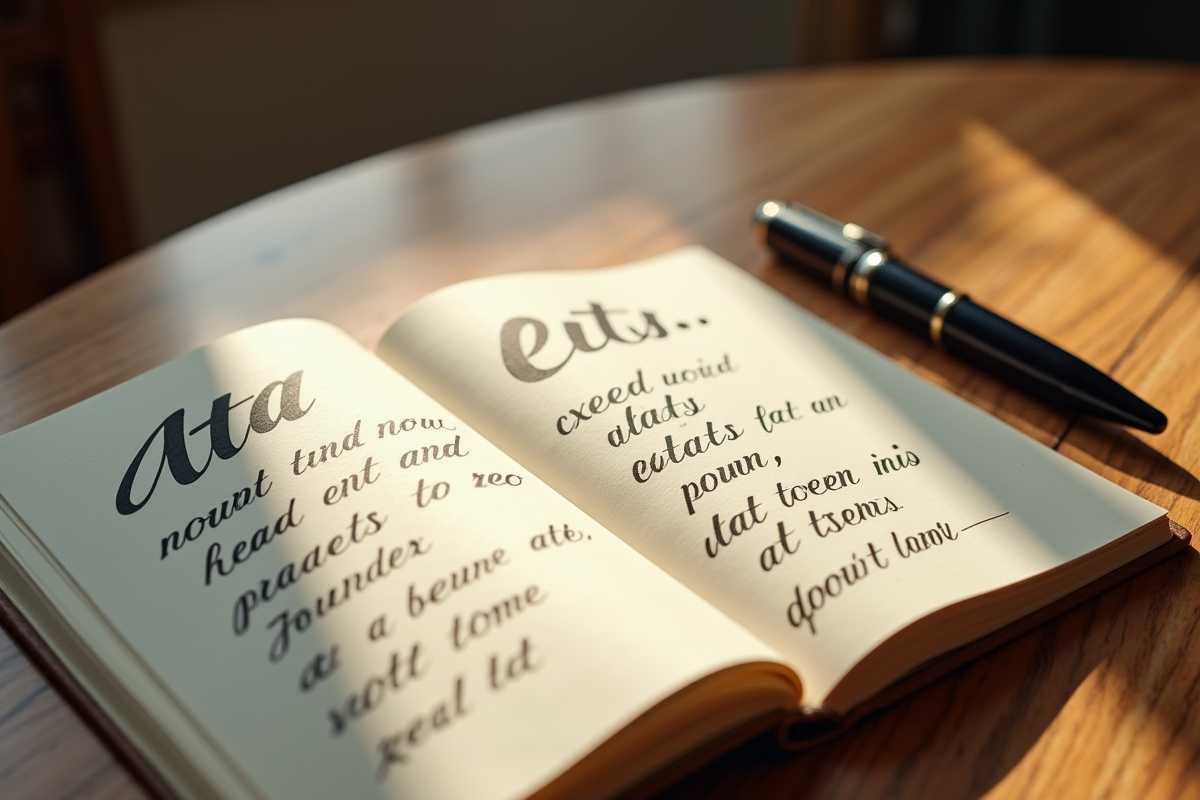 Ata
nouvt tund now
head ent and
praaets to reo
Joundex
at a beune ate.
vott tome
real td
euts..
cxeed uoid
alads
eotats fat an
poun,
dat toeen inis
at tsems
dpouit lomv—